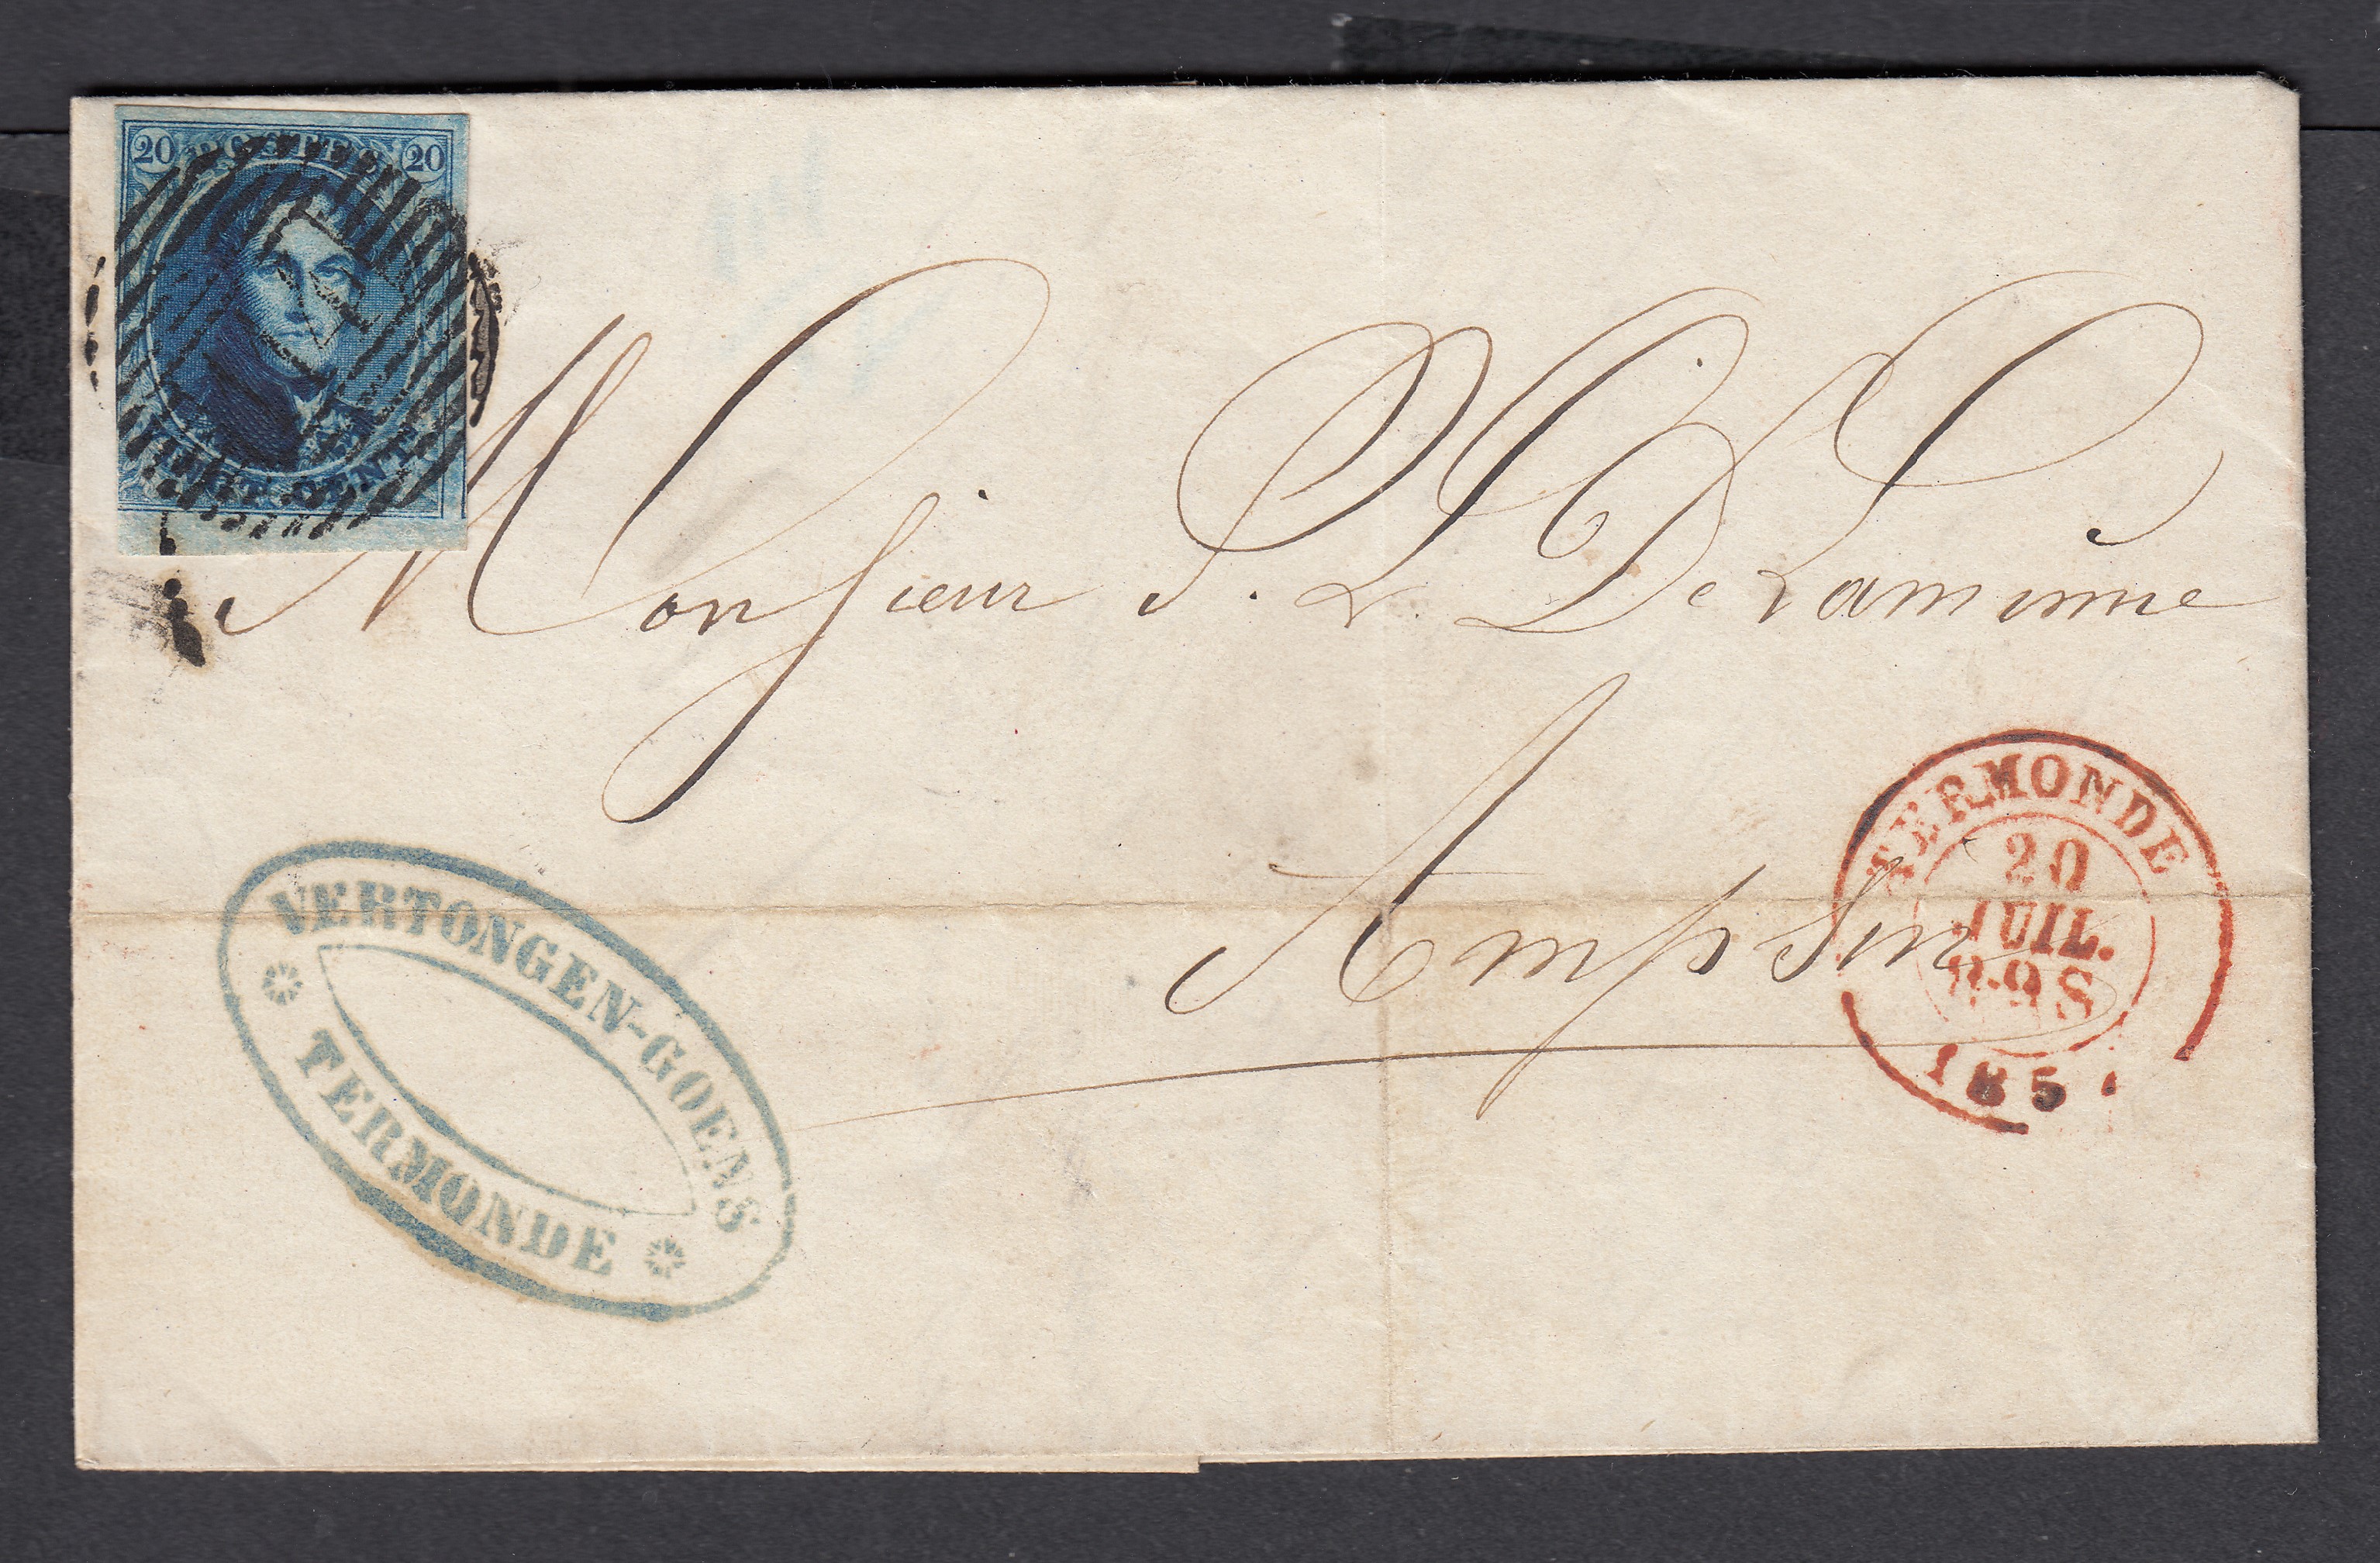 20 POSTES 20
VINGT CENT.
Monsieur J. L. De Laminne
Ampsin
TERMONDE
20
JUIL.
185
VERTONGEN-GOENS
TERMONDE